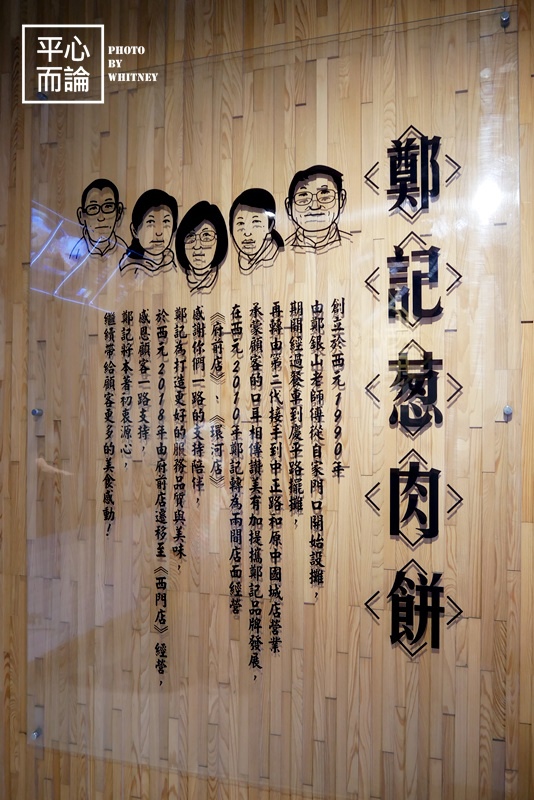 平心
而論
PHOTO
BY
WHITNEY
鄭記葱肉餅
創立於西元1990年
由鄭銀山老師傅從自家門口開始設攤，
期間經過餐車到慶平路擺攤，
再轉由第二代接手到中正路和原中國城店營業
承蒙顧客的口耳相傳讚美有加提攜鄭記品牌發展，
在西元2010年鄭記轉為兩間店面經營
《府前店》、《環河店》
感謝你們一路的支持陪伴，
鄭記為打造更好的服務品質與美味，
於西元2018年由府前店遷移至《西門店》經營，
感恩顧客一路支持，
鄭記將本著初衷源心，
繼續帶給顧客更多的美食感動！